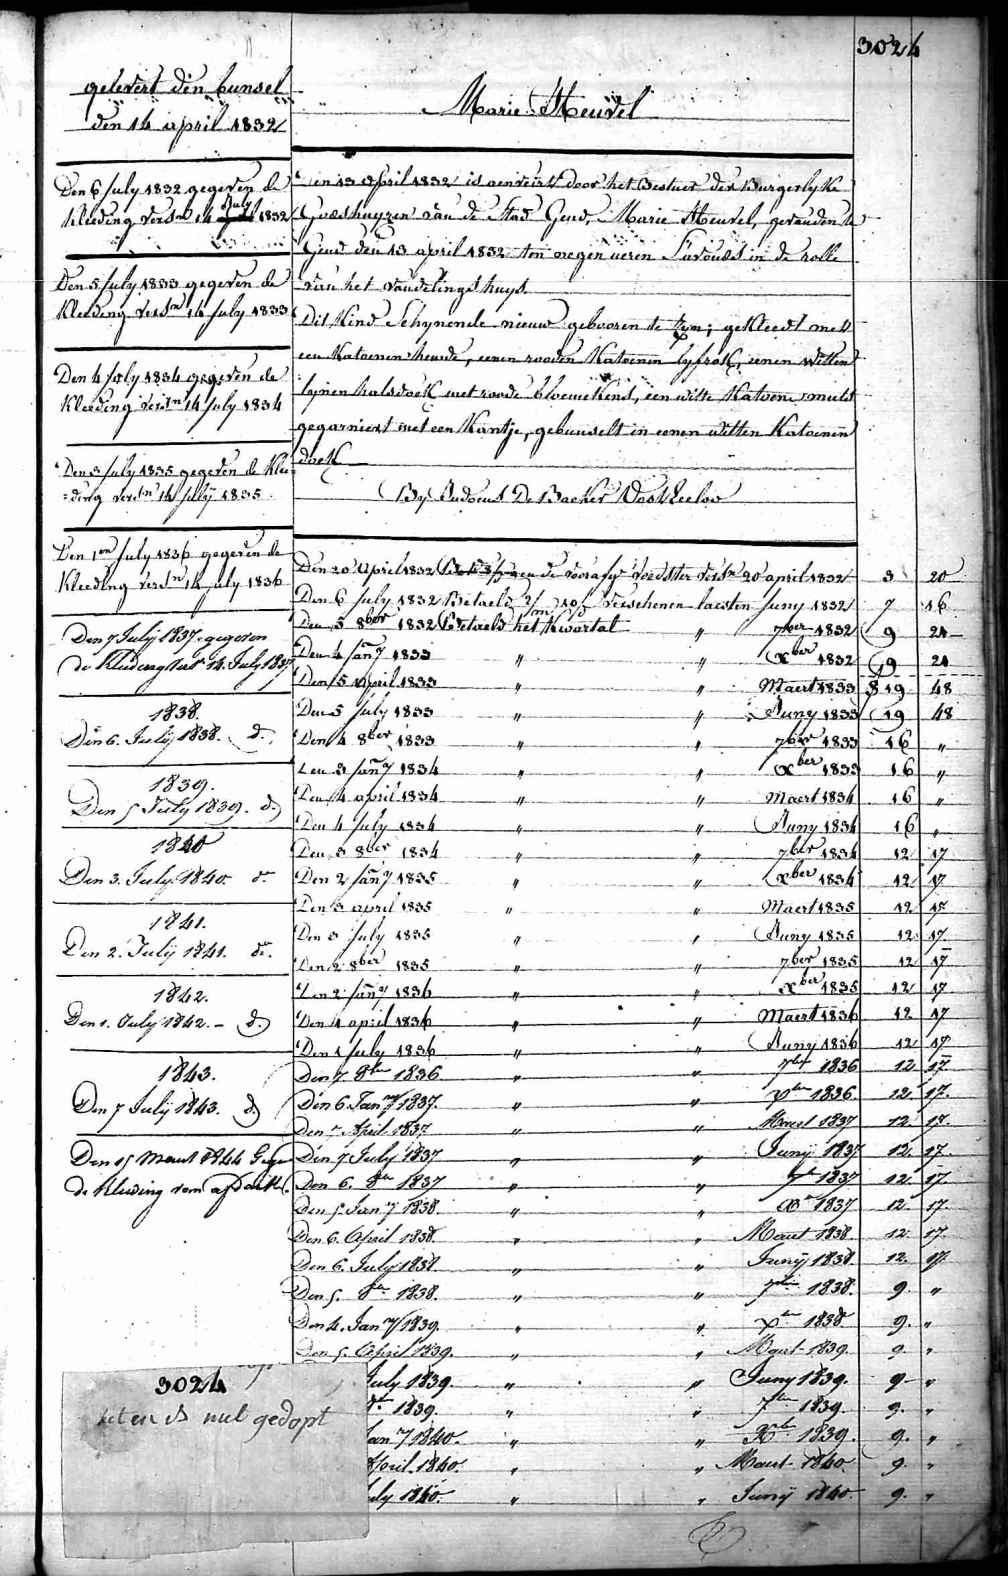 3024
gelevert den bunsel
den 14 april 1832
Den 6 July 1832 gegeven de
kleeding versn 14 July 1832
Den 5 July 1833 gegeven de
kleeding versn 14 July 1833
Den 4 July 1834 gegeven de
kleeding versn 14 July 1834
Den 3 July 1835 gegeven de klee
=ding versn 14 July 1835
Den 1en July 1836 gegeven de
kleeding versn 14 July 1836
Den 7 Julij 1837 gegeven
de kleeding 14 July 1837
1838.
Den 6. July 1838. do
1839.
Den 5 July 1839. do
1840
Den 3. July 1840. do
1841.
Den 2. Julij 1841. do.
1842.
Den 1. July 1842. - do
1843.
Den 7 Julij 1843. do
Den 15 Maert 1844
de kleeding
Marie Heuvel
Den 13 April 1832 is door het Bestuer der Burgerlyke
Godshuyzen van de Stad Gend, Marie Heuvel, gevonden te
Gend den 13 april 1832 ten negen ueren s'avonds in de rolle
van het vondelingshuys.
Dit kind schynende nieuw gebooren te zyn; gekleed met
een katoenen hemde, eenen rooden katoenen lyfrok, eenen witten
lynen halsdoek met roode bloemekens, een witte katoene muts
gegarniert met een kantje, gebunselt in eenen witten katoenen
doek
By Judocus De Backer Oosteecloo
Den 20 April 1832 de voorafg versn 20 april 1832 3 20
Den 6 July 1832 Betaeld verschenen laesten Juny 1832 7 16
Den 5 8ber 1832 Betaeld het kwartal " 7ber 1832 9 24
Den 4 Jany 1833 " " Xber 1832 19 24
Den 5 April 1833 " " Maert 1833 19 48
Den 5 July 1833 " " Juny 1833 19 48
Den 4 8ber 1833 " " 7ber 1833 16 "
Den 3 Jany 1834 " " Xber 1833 16 "
Den 4 april 1834 " " Maert 1834 16 "
Den 4 July 1834 " " Juny 1834 16 "
Den 3 8ber 1834 " " 7ber 1834 12 17
Den 2 Jany 1835 " " Xber 1834 12 17
Den 3 april 1835 " " Maert 1835 12 17
Den 3 July 1835 " " Juny 1835 12 17
Den 2 8ber 1835 " " 7ber 1835 12 17
Den 2 Jany 1836 " " Xber 1835 12 17
Den 1 april 1836 " " Maert 1836 12 17
Den 1 July 1836 " " Juny 1836 12 17
Den 7 8br 1836 " " 7ber 1836 12 17
Den 6. Jany 1837. " " Xber 1836. 12. 17.
Den 7 April 1837 " " Maert 1837 12. 17.
Den 7 July 1837 " " Junij 1837 12. 17.
Den 6. 8br 1837 " " 7br 1837 12. 17.
Den 5. Jany 1838. " " Xbr 1837 12. 17.
Den 6. April 1838. " " Maert 1838. 12. 17.
Den 6. July 1838. " " Junij 1838 12. 17.
Den 5. 8br 1838. " " 7ber 1838. 9. "
Den 4. Jany 1839. " " Xber 1838. 9. "
Den 5. April 1839. " " Maert 1839. 9. "
July 1839. " " Juny 1839. 9 "
8br 1839. " " 7br 1839. 9. "
Jany 1840. " " Xbr 1839. 9. "
April 1840. " " Maert 1840. 9. "
July 1840. " " Junij 1840. 9. "
3024
is gedopt